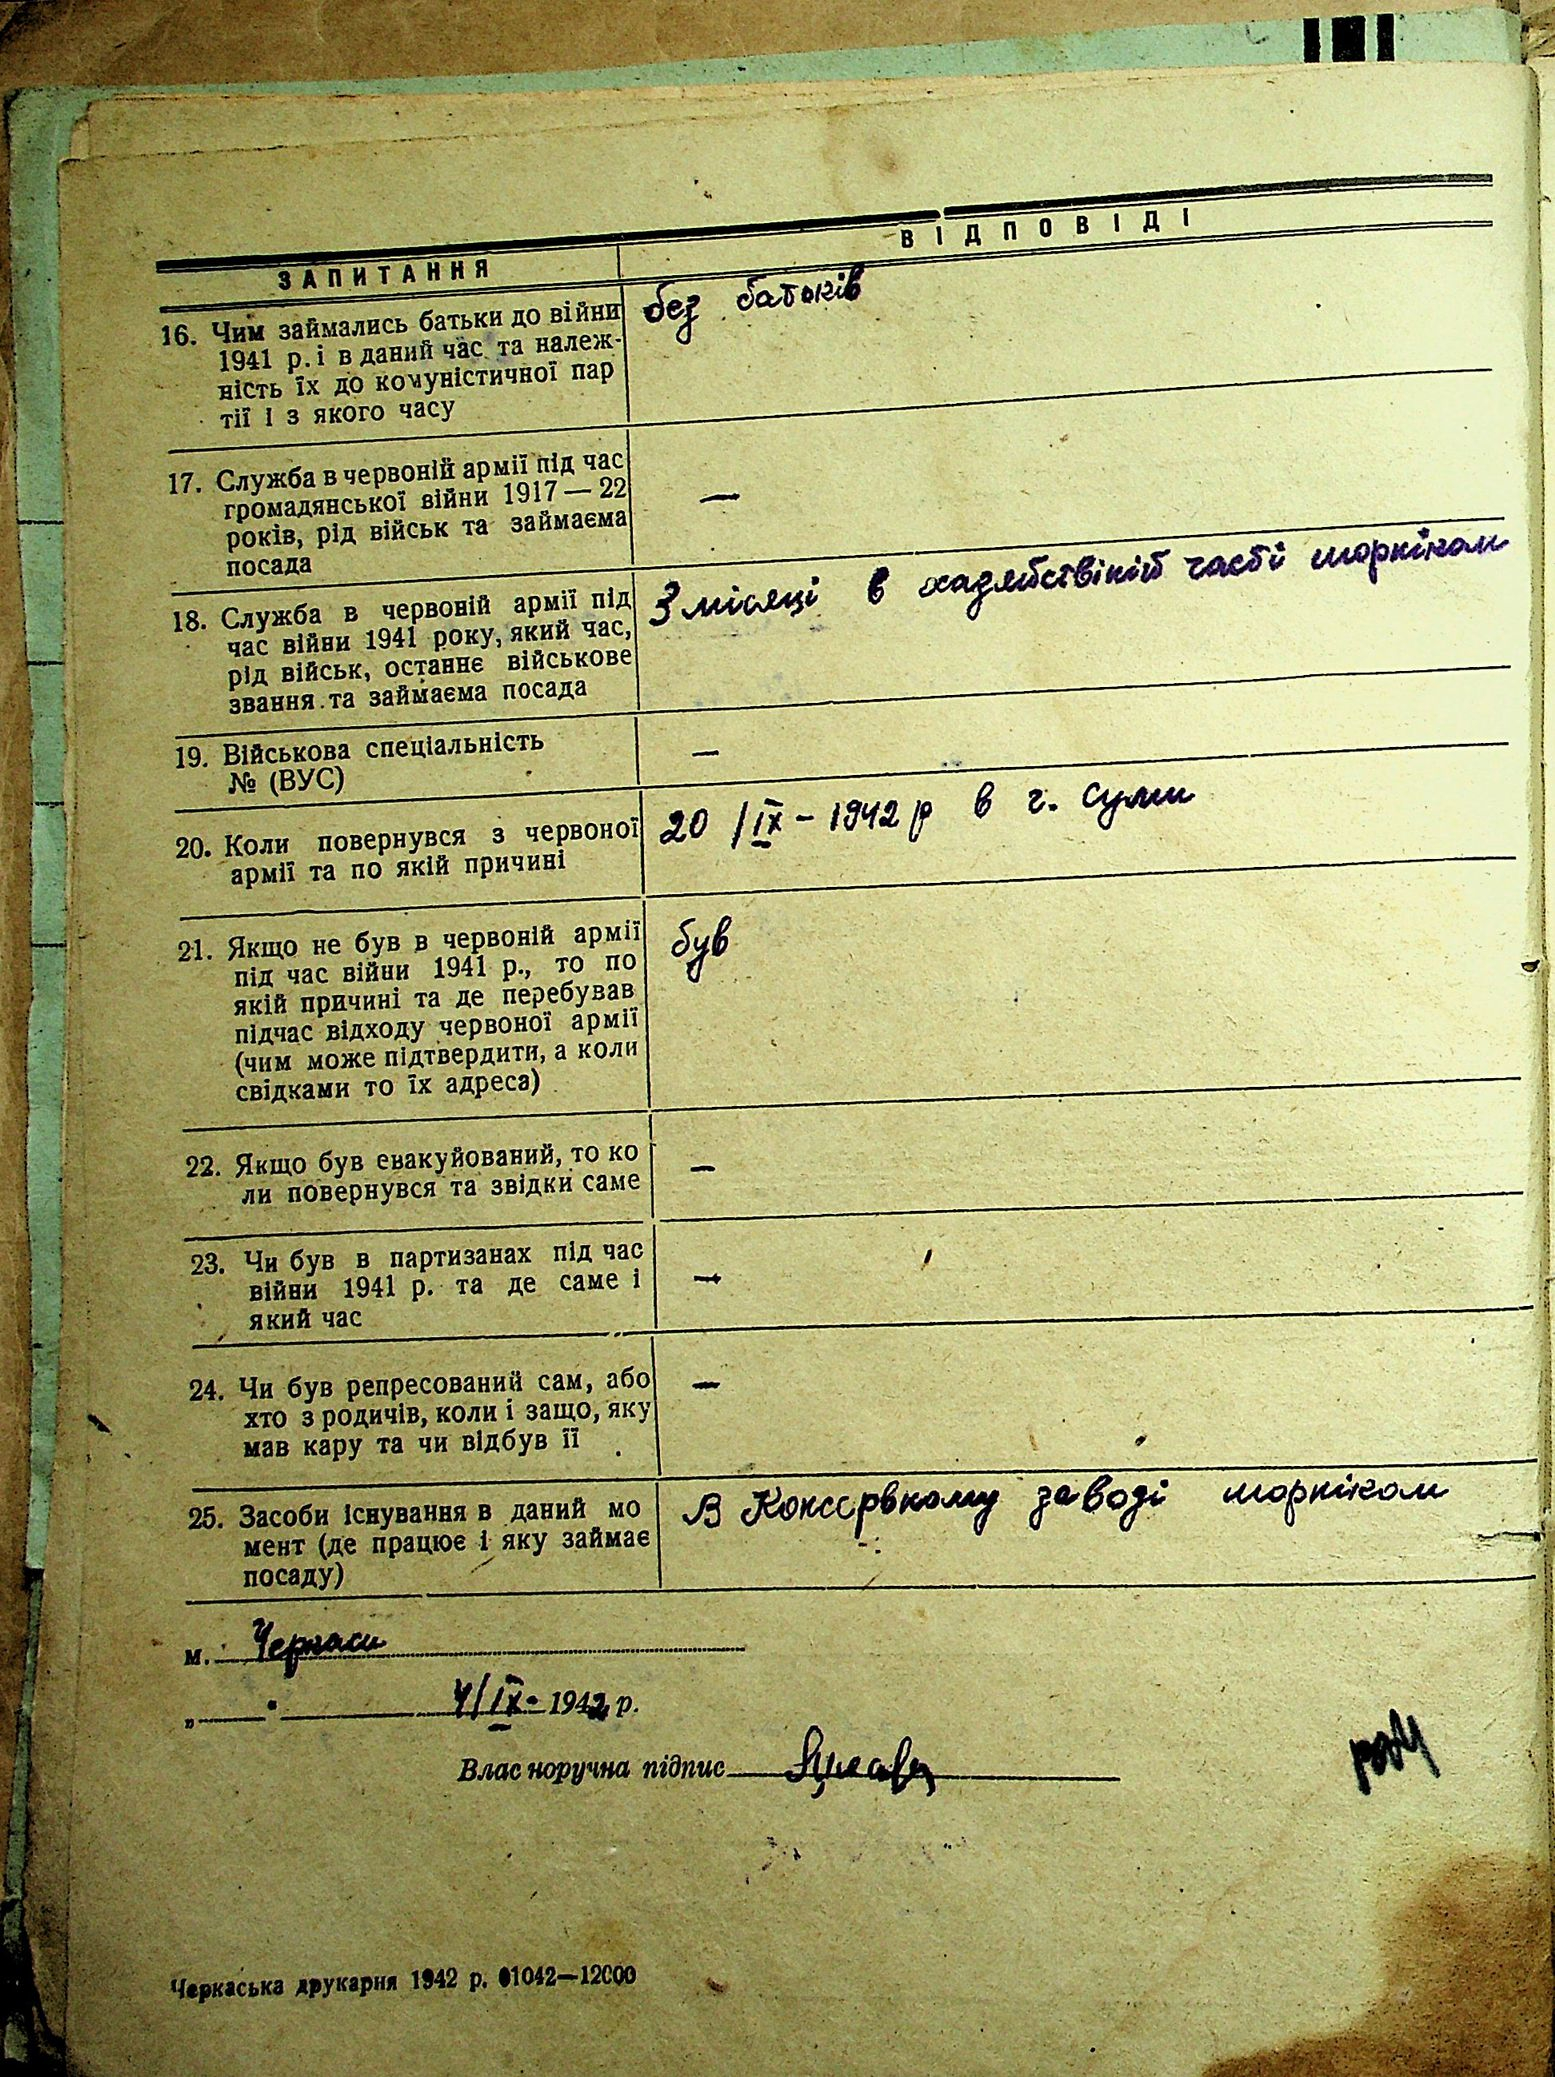 ЗАПИТАННЯ
ВІДПОВІДІ
16. Чим займались батьки до війни
1941 р. і в даний час та належ-
ність їх до комуністичної пар
тії і з якого часу
без батьків
17. Служба в червоній армії під час
громадянської війни 1917—22
років, рід військ та займаєма
посада
—
18. Служба в червоній армії під
час війни 1941 року, який час,
рід військ, останнє військове
звання та займаєма посада
3 місяці в часті шорніком
19. Військова спеціальність
№ (ВУС)
—
20. Коли повернувся з червоної
армії та по якій причині
20/IX - 1942 р в г. Суми
21. Якщо не був в червоній армії
під час війни 1941 р., то по
якій причині та де перебував
підчас відходу червоної армії
(чим може підтвердити, а коли
свідками то їх адреса)
був
22. Якщо був евакуйований, то ко
ли повернувся та звідки саме
—
23. Чи був в партизанах під час
війни 1941 р. та де саме і
який час
—
24. Чи був репресований сам, або
хто з родичів, коли і защо, яку
мав кару та чи відбув її
—
25. Засоби існування в даний мо
мент (де працює і яку займає
посаду)
В Консервному заводі шорніком
м. Черкаси
„ " 4/IX- 1942 р.
Власноручна підпис
Черкаська друкарня 1942 р. 01042—12000